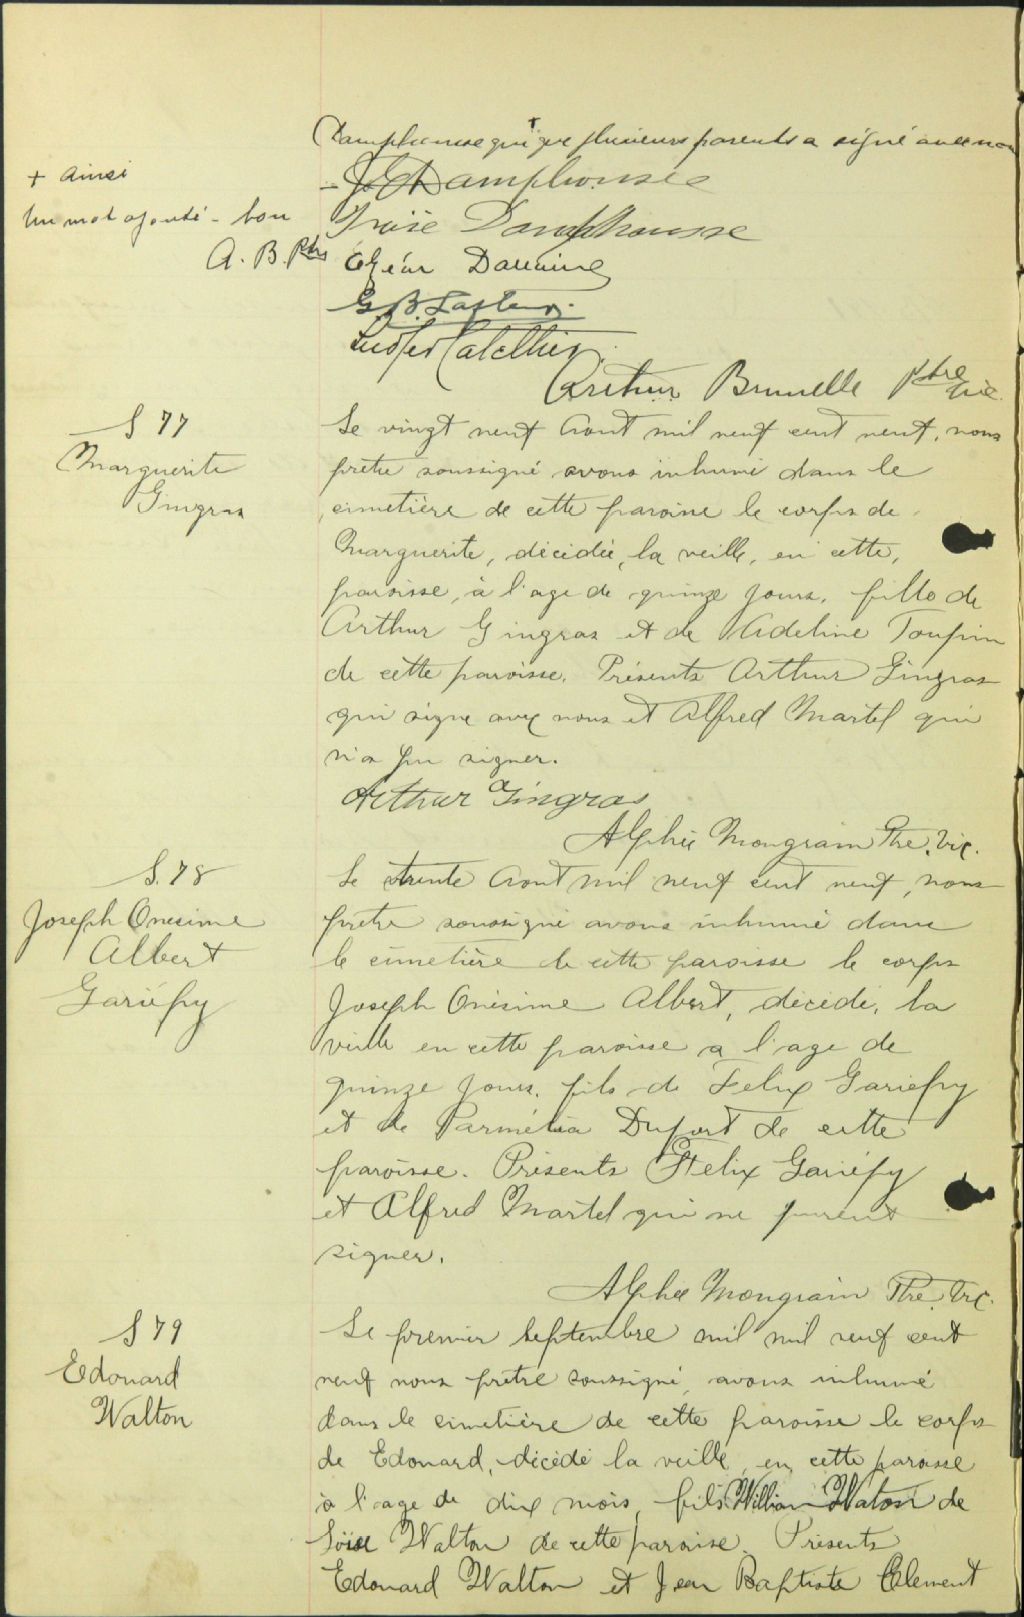 Damphousse qui + que plusieurs parents a signé avec nous
+ ainsi
Un mot ajouté - bon
A. B. Ptre
Damphousse
Damphousse
G. B.
Arthur Brunelle Ptre vic.
S 77
Marguerite
Gingras
Le vingt neuf Aout mil neuf cent neuf, nous
prêtre soussigné avons inhumé dans le
cimetière de cette paroisse le corps de
Marguerite, décédée, la veille, en cette,
paroisse, à l'age de quinze jours, fille de
Arthur Gingras et de Adeline Toupin
de cette paroisse. Présents Arthur Gingras
qui signe avec nous et Alfred Martel qui
n'a pu signer.
Arthur Gingras
Alphée Mongrain Ptre. Vic.
S. 78
Joseph Onesime
Albert
Gariépy
Le trente Aout mil neuf cent neuf, nous
prêtre soussigné avons inhumé dans
le cimetière de cette paroisse le corps
Joseph Onésime Albert, décédé, la
veille en cette paroisse a l'age de
quinze jours, fils de Felix Gariépy
et de Parmélia Dufort de cette
paroisse. Présents Felix Gariépy
et Alfred Martel qui ne purent
signer.
Alphée Mongrain Ptre. Vic.
S 79
Edouard
Walton
Le premier Septembre mil mil neuf cent
neuf nous prêtre soussigné, avons inhumé
dans le cimetière de cette paroisse le corps
de Edouard, décédé la veille, en cette paroisse
à l'age de dix mois, fils William Watson de
Walton de cette paroisse. Présents
Edouard Walton et Jean Baptiste Clement